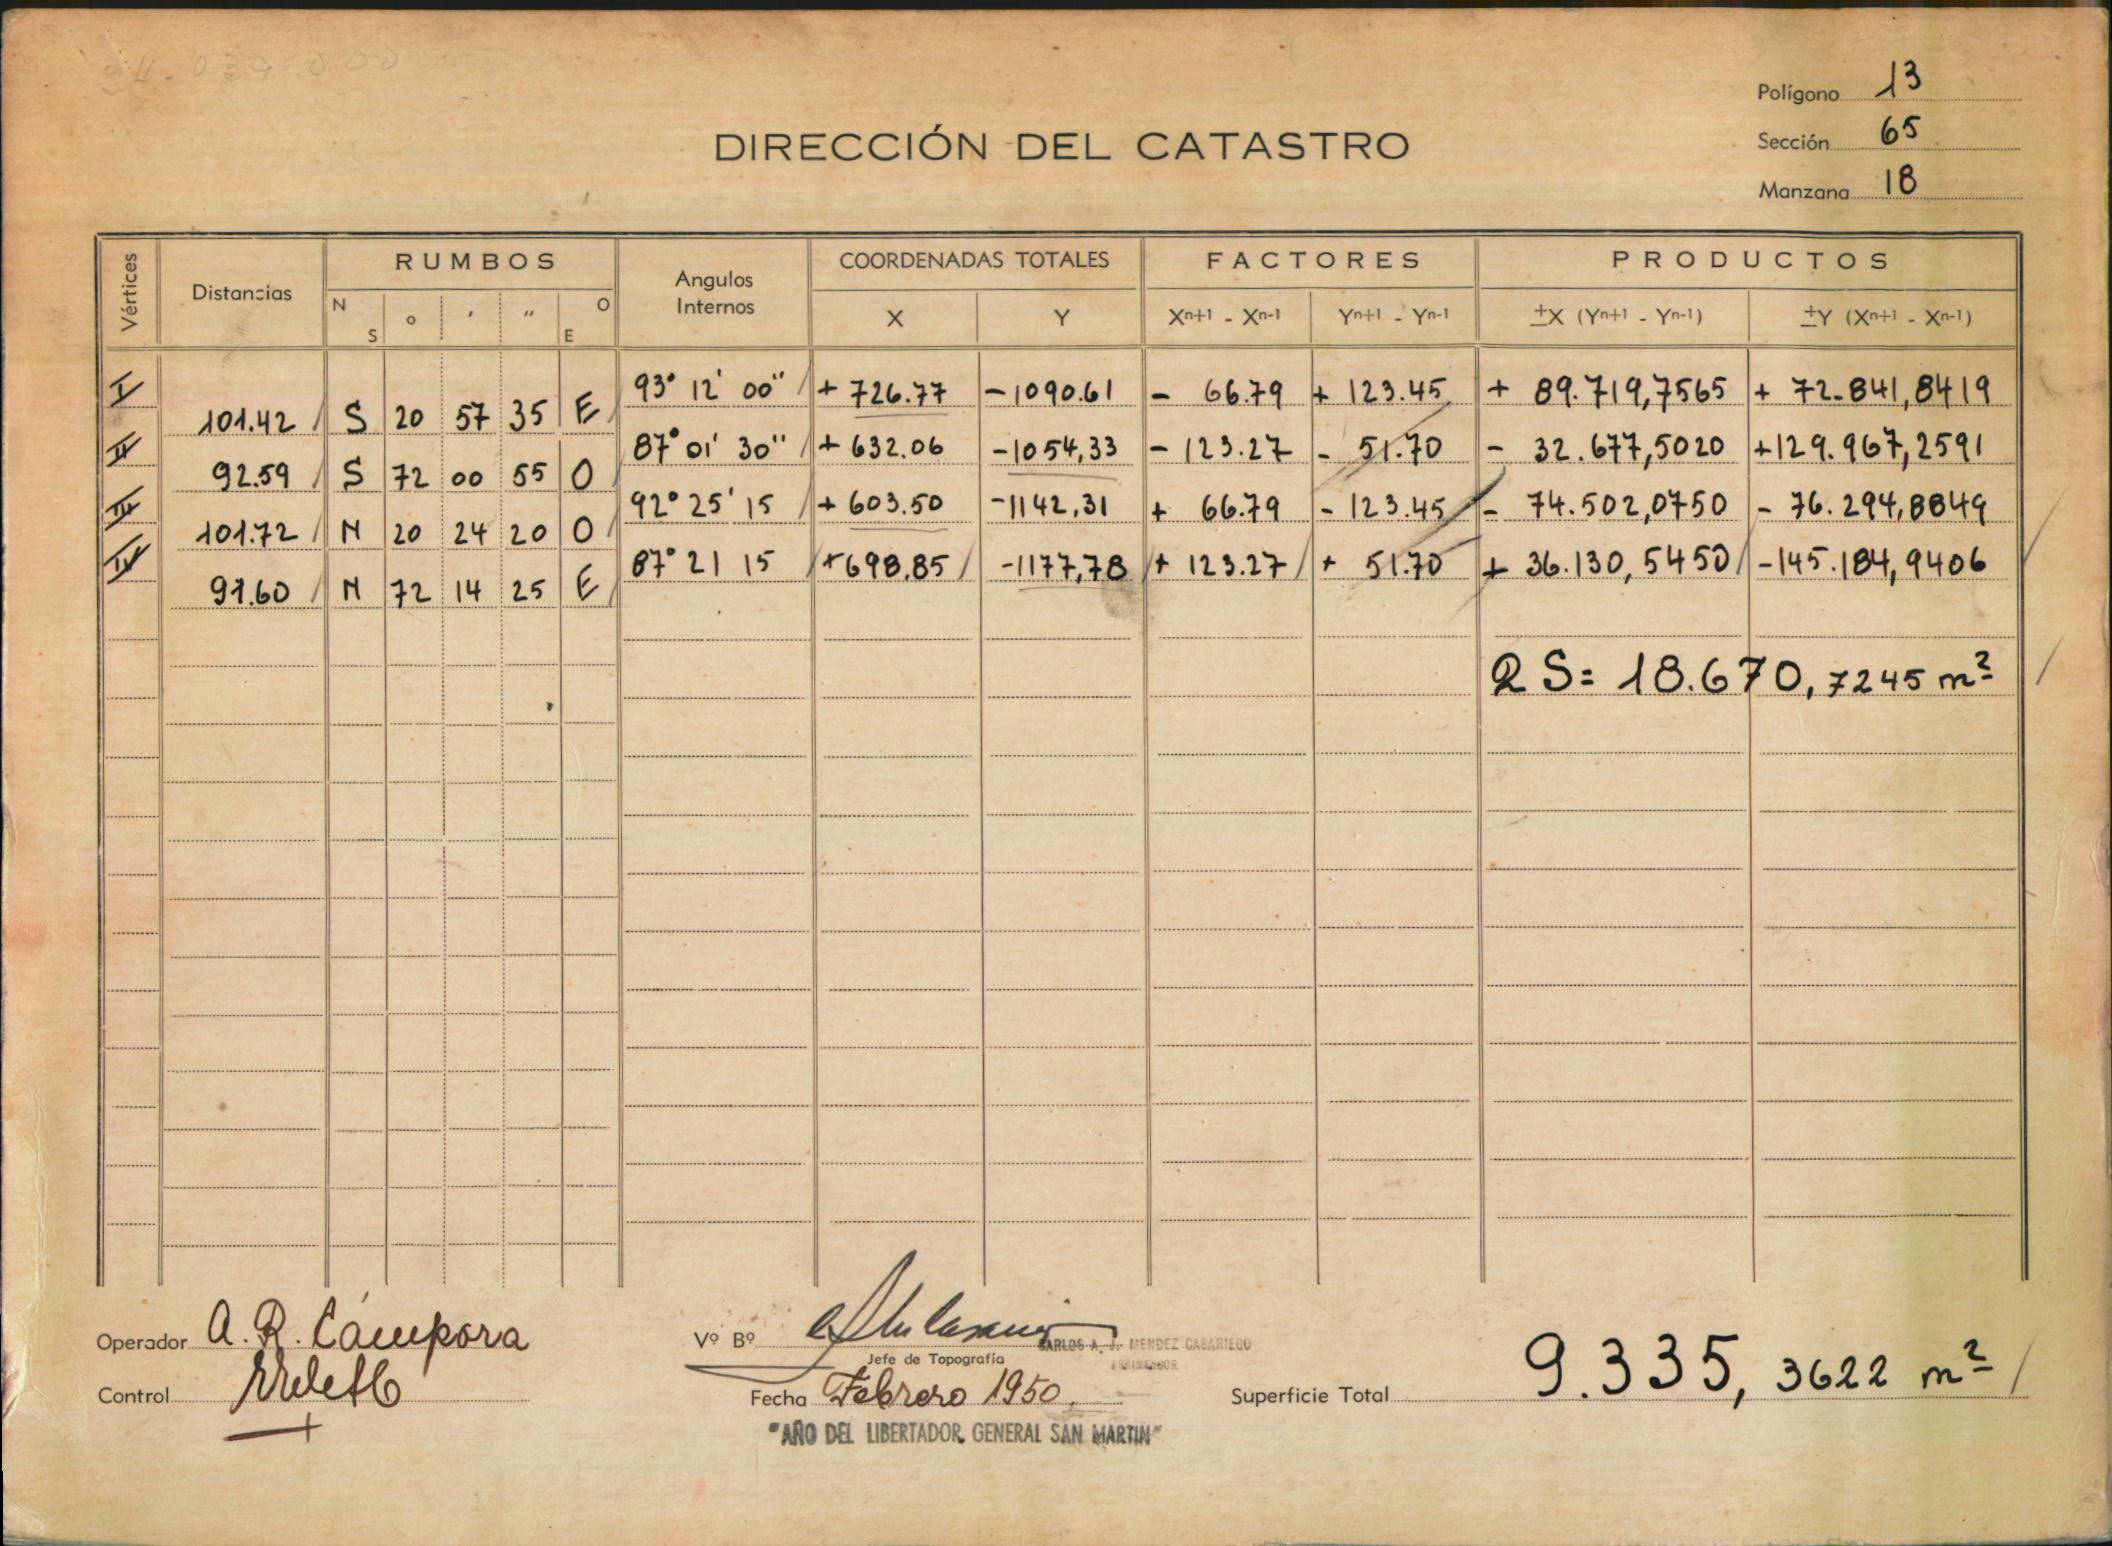 Polígono 13
DIRECCIÓN DEL CATASTRO
Sección 65
Manzana 18
Vértices Distancias RUMBOS Angulos Internos COORDENADAS TOTALES FACTORES PRODUCTOS
N S o ' " O E X Y Xn+1 - Xn-1 Yn+1 - Yn-1 ±X (Yn+1 - Yn-1) ±Y (Xn+1 - Xn-1)
I 93° 12' 00" + 726.77 -1090.61 - 66.79 + 123.45 + 89.719,7565 + 72.841,8419
101.42 S 20 57 35 E
II 87° 01' 30" + 632.06 -1054,33 - 123.27 - 51.70 - 32.677,5020 +129.967,2591
92.59 S 72 00 55 O
III 92° 25' 15 + 603.50 -1142,31 + 66.79 - 123.45 - 74.502,0750 - 76.294,8849
101.72 N 20 24 20 O
IV 87° 21 15 +698,85 -1177,78 + 123.27 + 51.70 + 36.130,5450 -145.184,9406
91.60 N 72 14 25 E
2 S= 18.670,7245 m²
Operador A. R. Cámpora
Vº Bº
CARLOS A. J. MENDEZ CASARIEGO
Jefe de Topografía
AGRIMENSOR
Control
Fecha Febrero 1950.
Superficie Total 9.335,3622 m²
"AÑO DEL LIBERTADOR GENERAL SAN MARTIN"